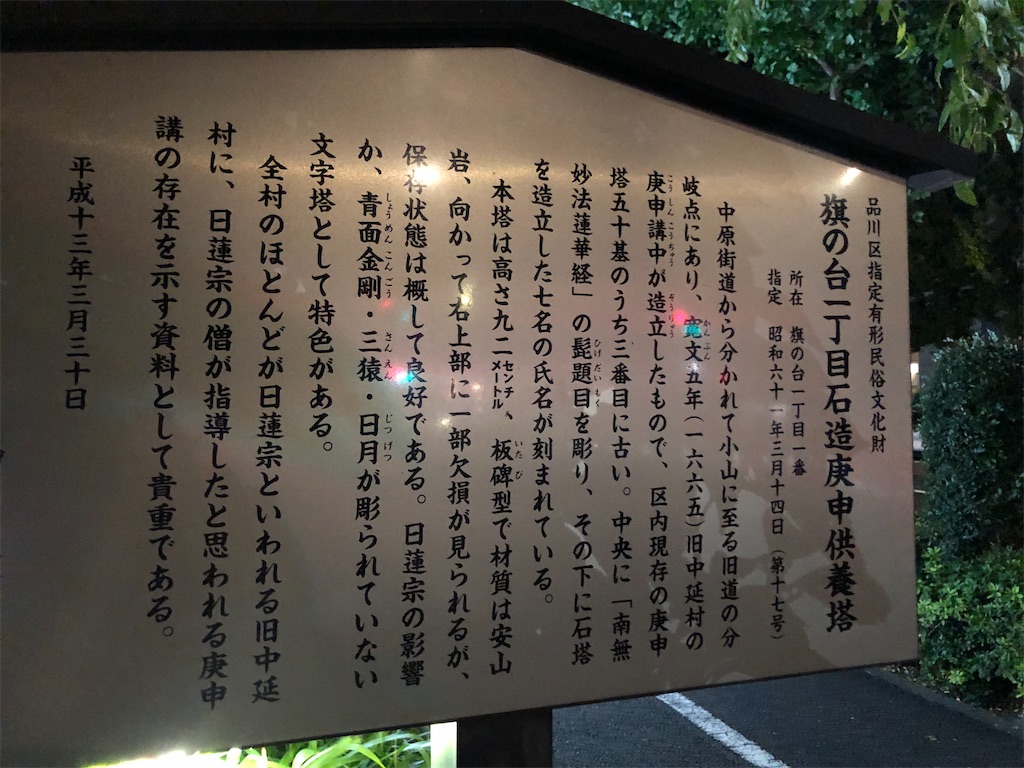 品川区指定有形民俗文化財
旗の台一丁目石造庚申供養塔
所在　旗の台一丁目一番
指定　昭和六十一年三月十四日（第十七号）
中原街道から分かれて小山に至る旧道の分
岐点にあり、寛文五年（一六六五）旧中延村の
かんぶん
庚申講中が造立したもので、区内現存の庚申
こうしんこうちゅう　ぞうりゅう
塔五十基のうち三番目に古い。中央に「南無
妙法蓮華経」の髭題目を彫り、その下に石塔
ひげだいもく
を造立した七名の氏名が刻まれている。
本塔は高さ九二センチメートル、板碑型で材質は安山
いたび
岩、向かって右上部に一部欠損が見られるが、
保存状態は概して良好である。日蓮宗の影響
か、青面金剛・三猿・日月が彫られていない
しょうめんこんごう　さんえん　じつげつ
文字塔として特色がある。
全村のほとんどが日蓮宗といわれる旧中延
村に、日蓮宗の僧が指導したと思われる庚申
講の存在を示す資料として貴重である。
平成十三年三月三十日